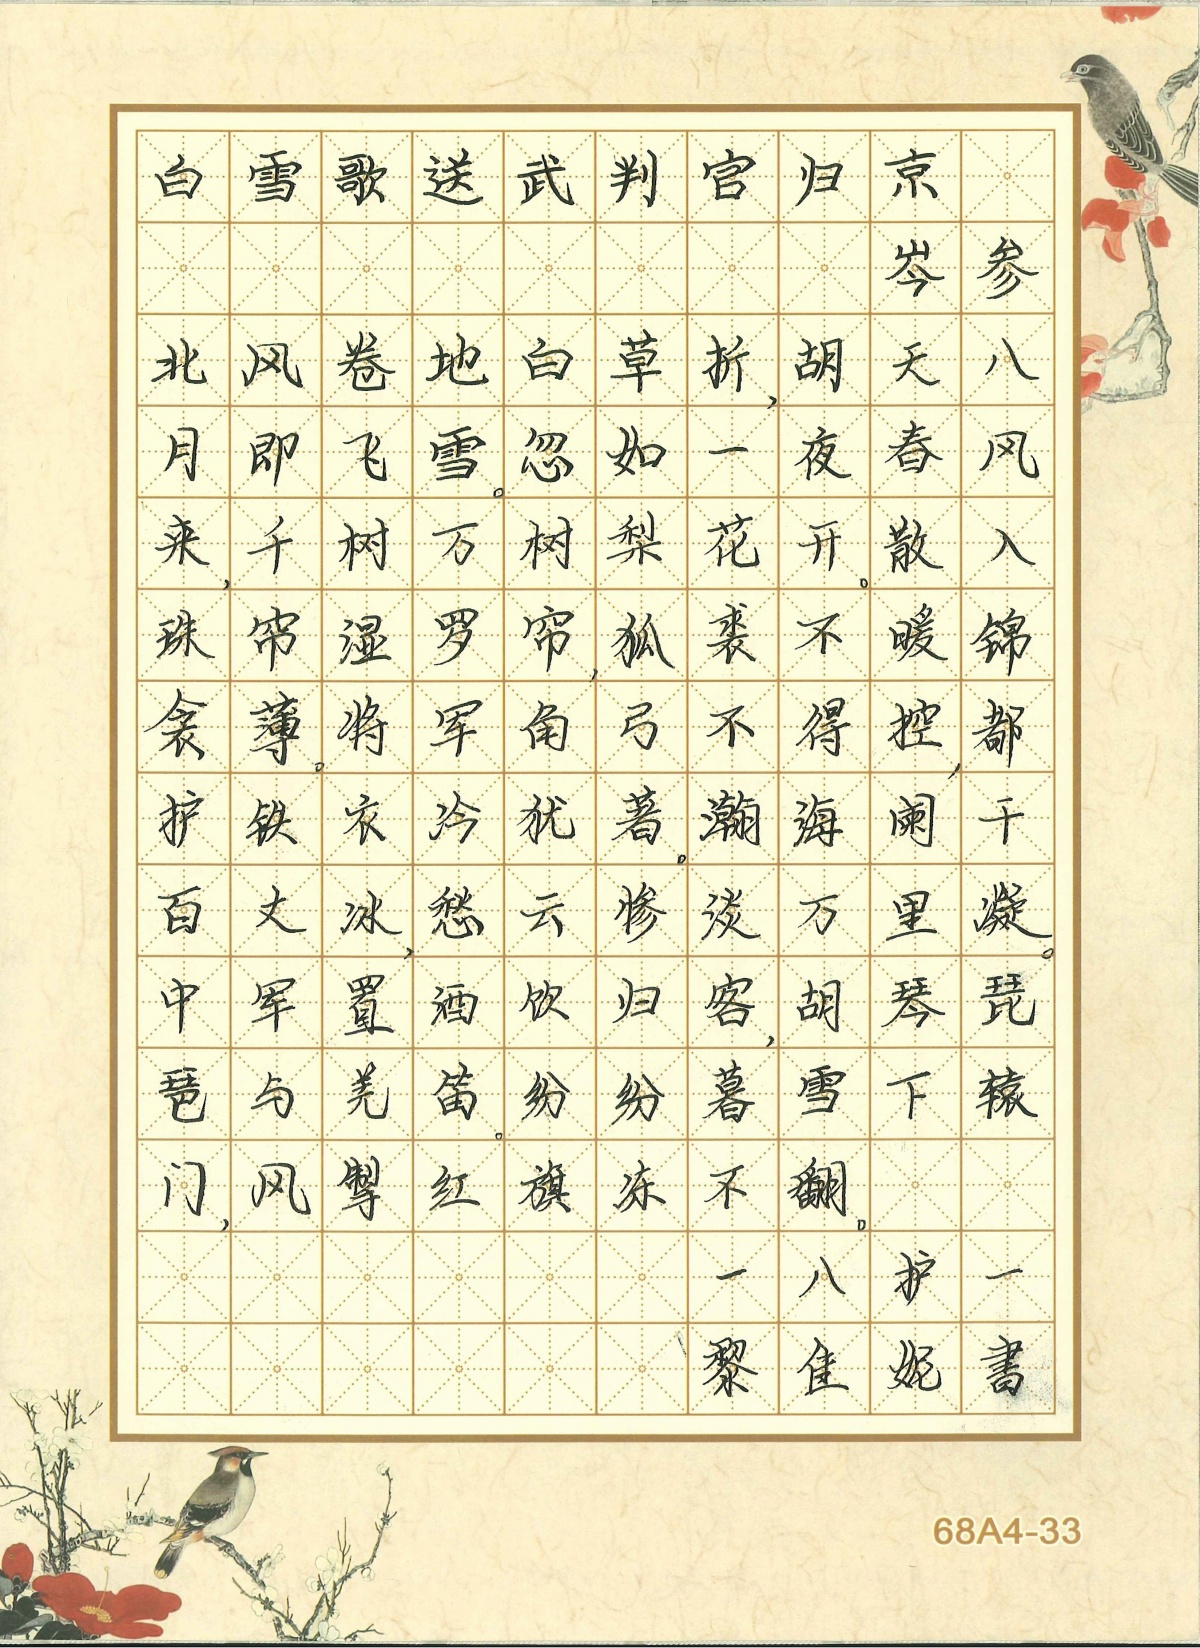 白雪歌送武判官归京
岑参
北风卷地白草折，胡天八
月即飞雪。忽如一夜春风
来，千树万树梨花开。散入
珠帘湿罗帘，狐裘不暖锦
衾薄。将军角弓不得控，都
护铁衣冷犹著。瀚海阑干
百丈冰，愁云惨淡万里凝。
中军置酒饮归客，胡琴琵
琶与羌笛。纷纷暮雪下辕
门，风掣红旗冻不翻。
一八护一
黎佳妮書
68A4-33